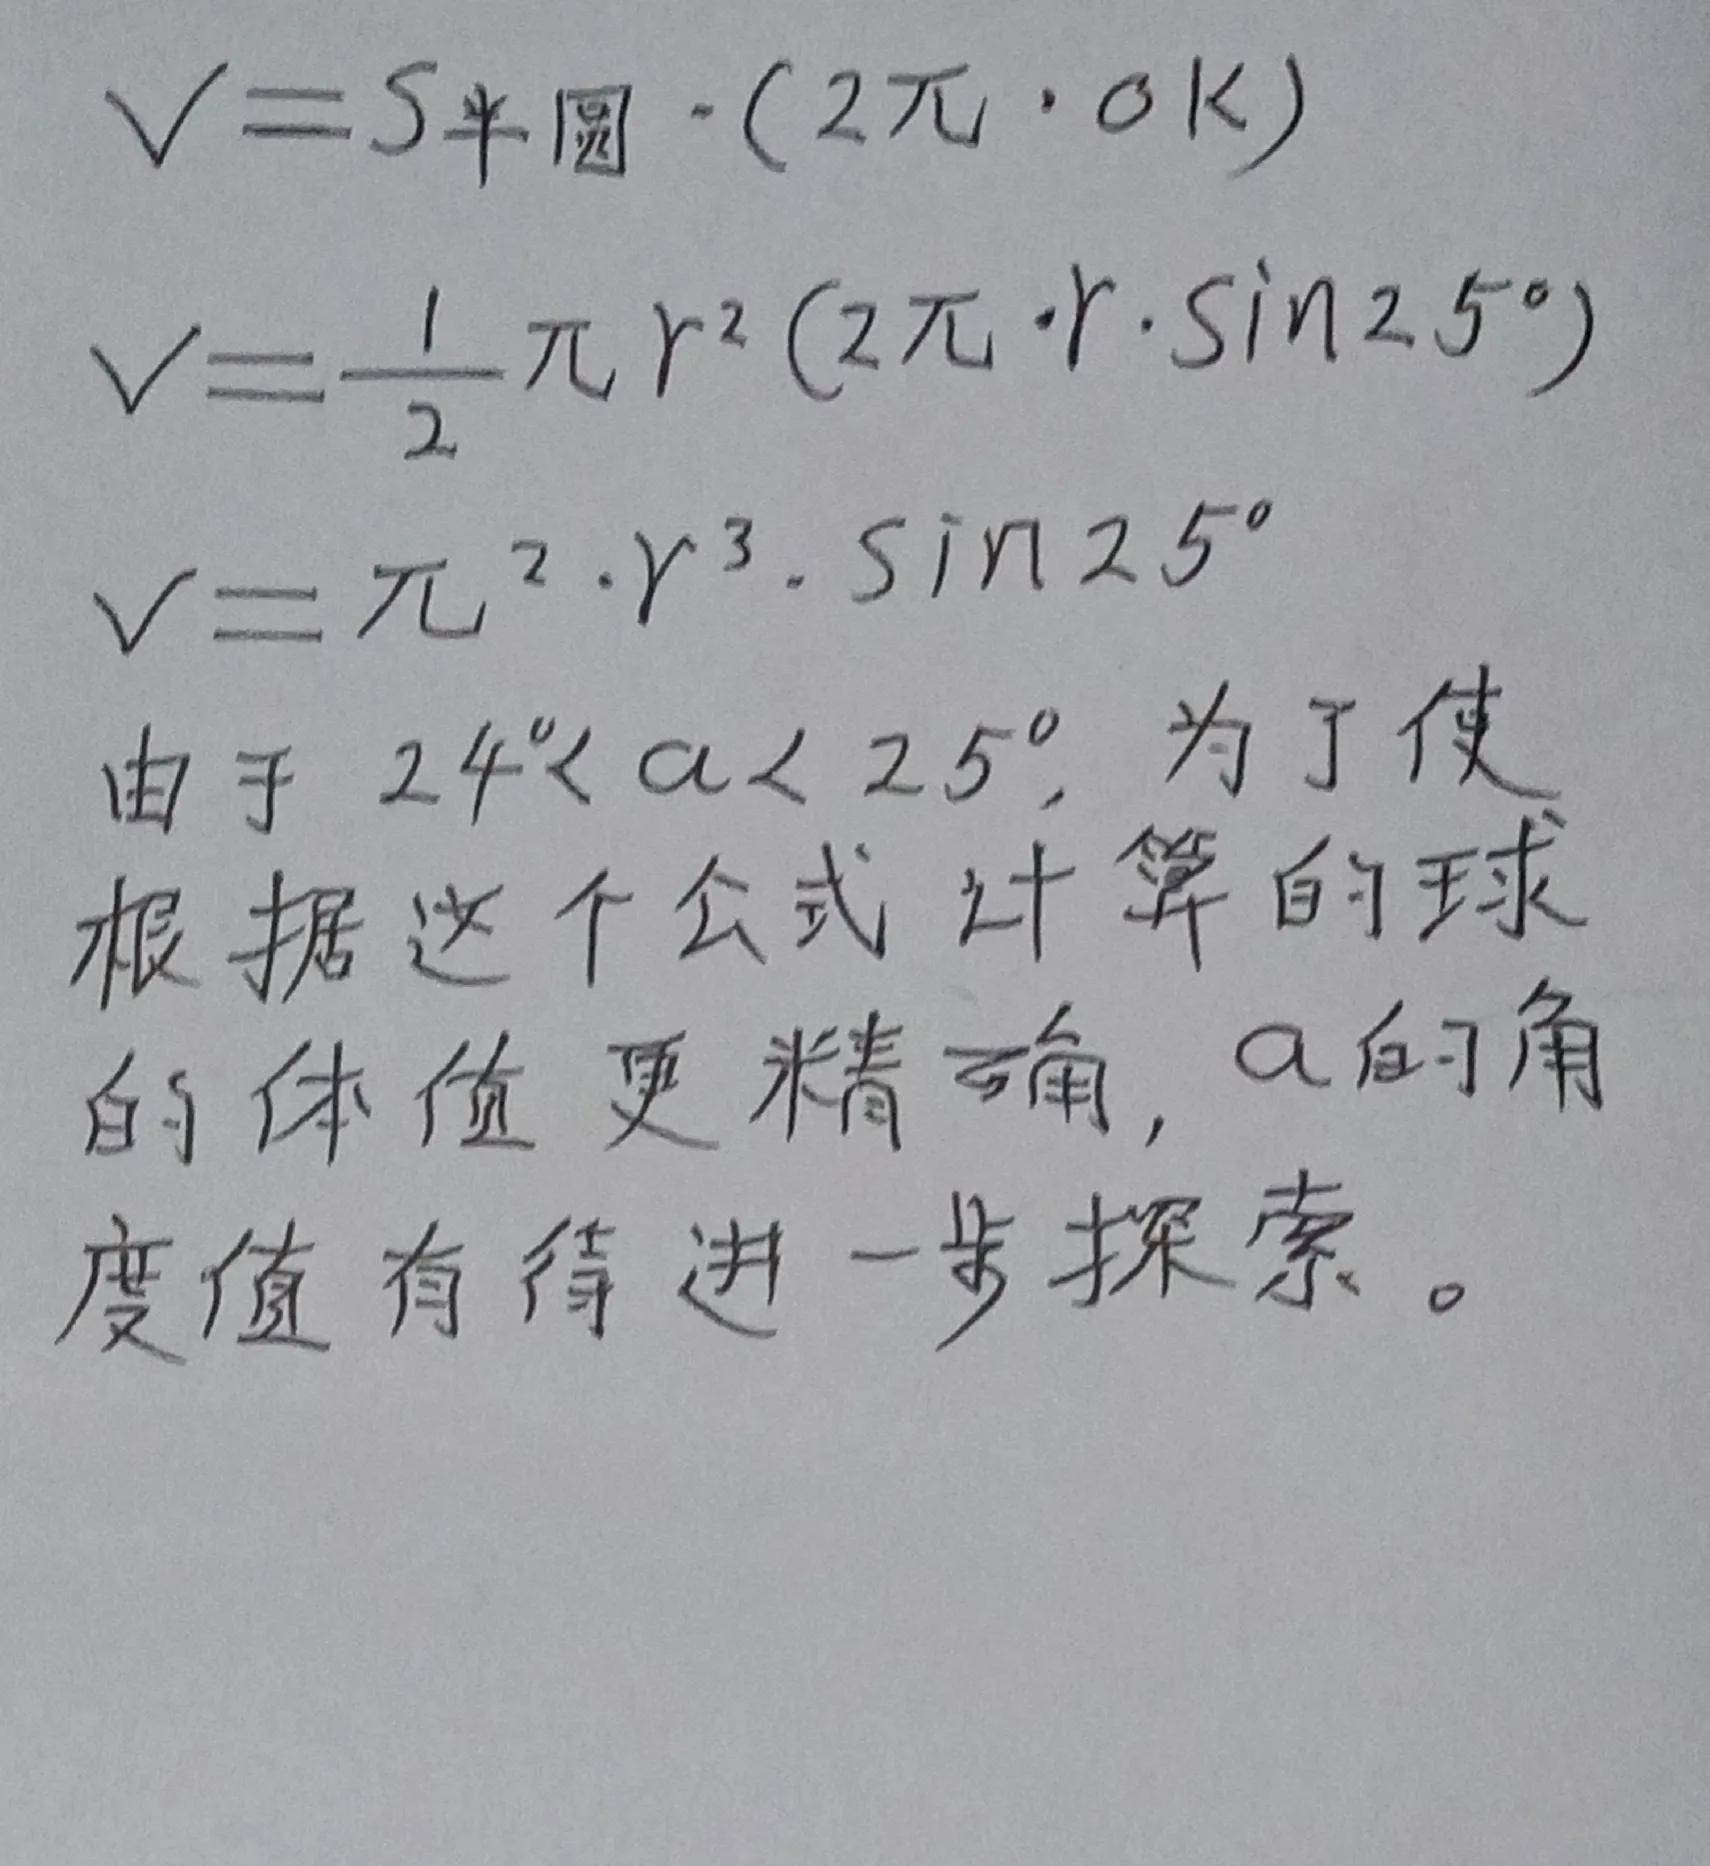 V=S半圆·(2π·OK)
V=1/2πr²(2π·r·sin25°)
V=π²·r³·sin25°
由于24°<a<25°,为了使
根据这个公式计算的球
的体值更精确,a的角
度值有待进一步探索。